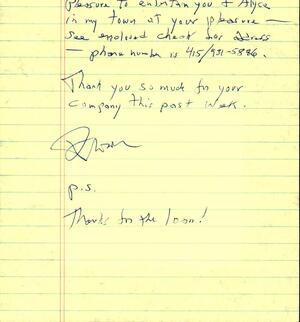 pleasure to entertain you & Alyce
in my town at your pleasure —
see enclosed check for address
— phone number is 415/931-5886.
Thank you so much for your
company this past week.
p.s.
Thanks for the loan!